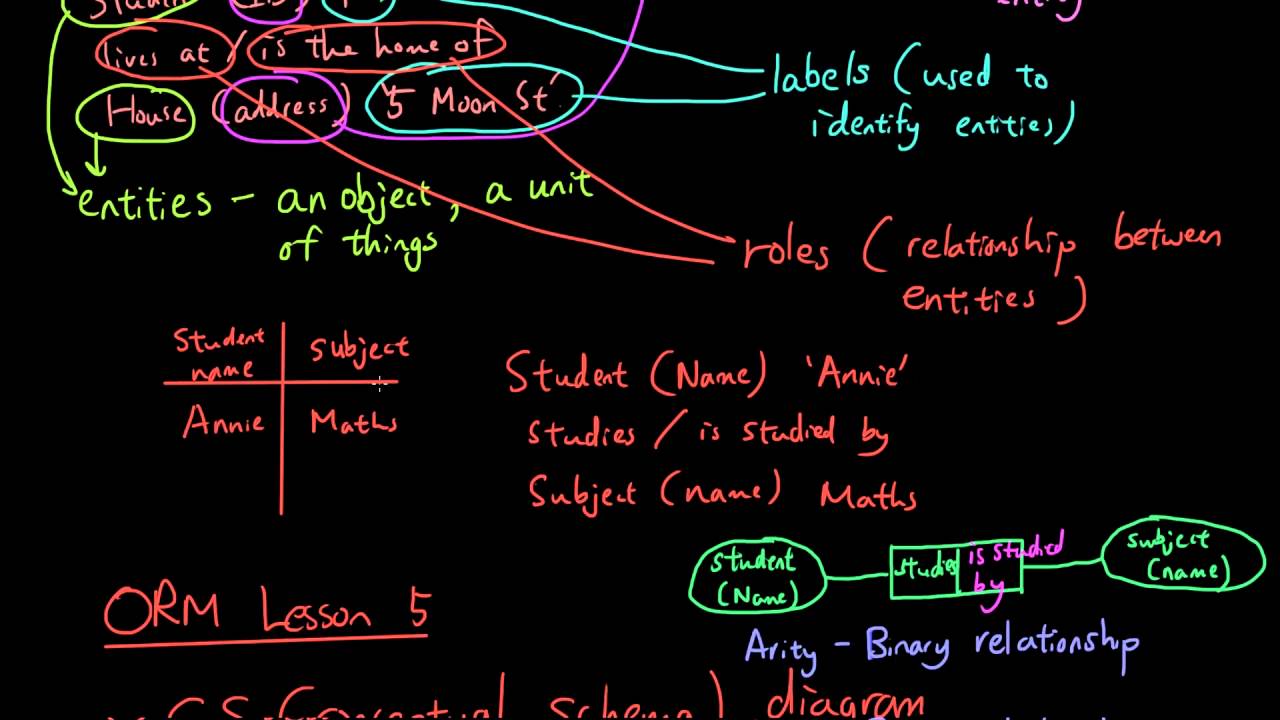 Student (ID)
entity
lives at / is the home of
House (address) '5 Moon St'
labels (used to
identify entities)
entities - an object, a unit
of things
roles (relationship between
entities)
Student name | Subject
Annie | Maths
Student (Name) 'Annie'
Studies / is studied by
Subject (name) Maths
student (Name)
studies | is studied by
subject (name)
ORM Lesson 5
Arity - Binary relationship
CS (Conceptual schema) diagram